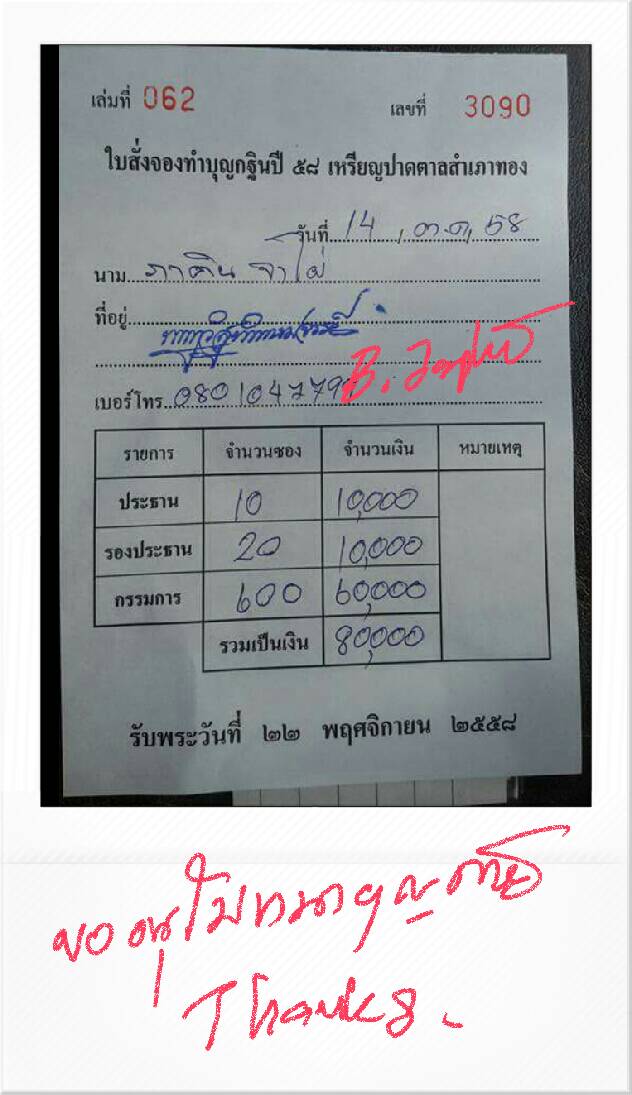 เล่มที่ 062 เลขที่ 3090
ใบสั่งจองทำบุญกฐินปี ๕๘ เหรียญปาดตาลสำเภาทอง
วันที่ 14, ต.ค, 58
นาม ภาคิน
ที่อยู่
B.
เบอร์โทร 080104779
รายการ จำนวนซอง จำนวนเงิน หมายเหตุ
ประธาน 10 10,000
รองประธาน 20 10,000
กรรมการ 600 60,000
รวมเป็นเงิน 80,000
รับพระวันที่ ๒๒ พฤศจิกายน ๒๕๕๘
ขออนุโมทนา
Thanks.